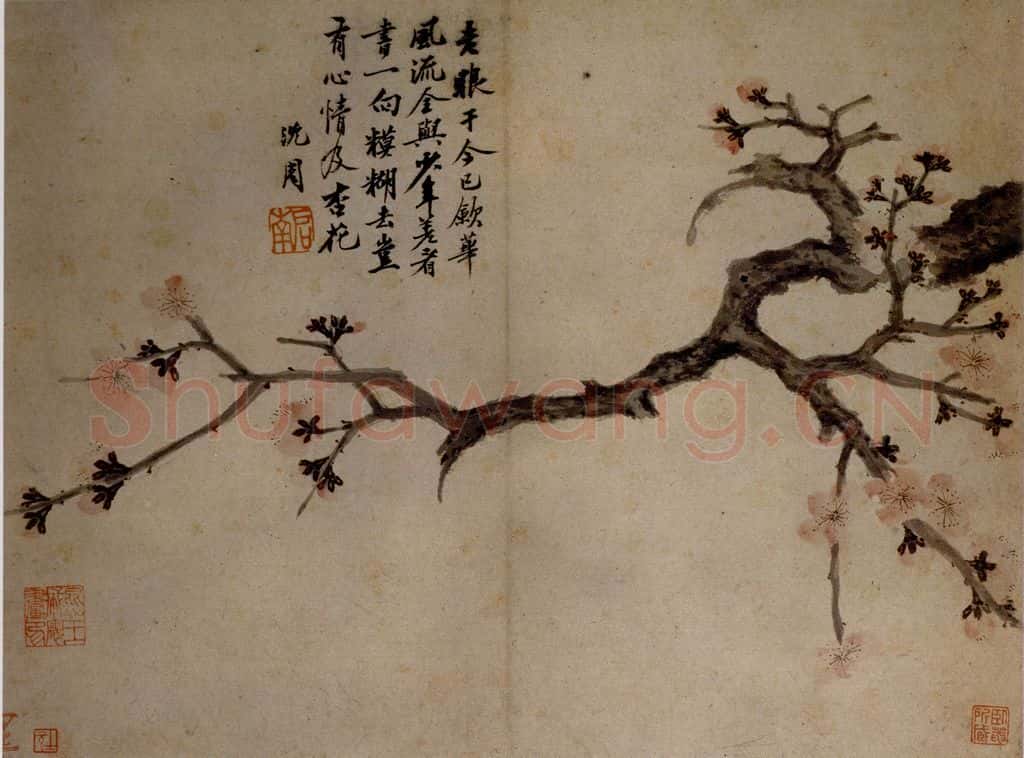 老眼于今已歛華
風流全與少年差看
書一向糢糊去豈
有心情及杏花
沈周
啟南
Shufawang.CN
臥菴所藏